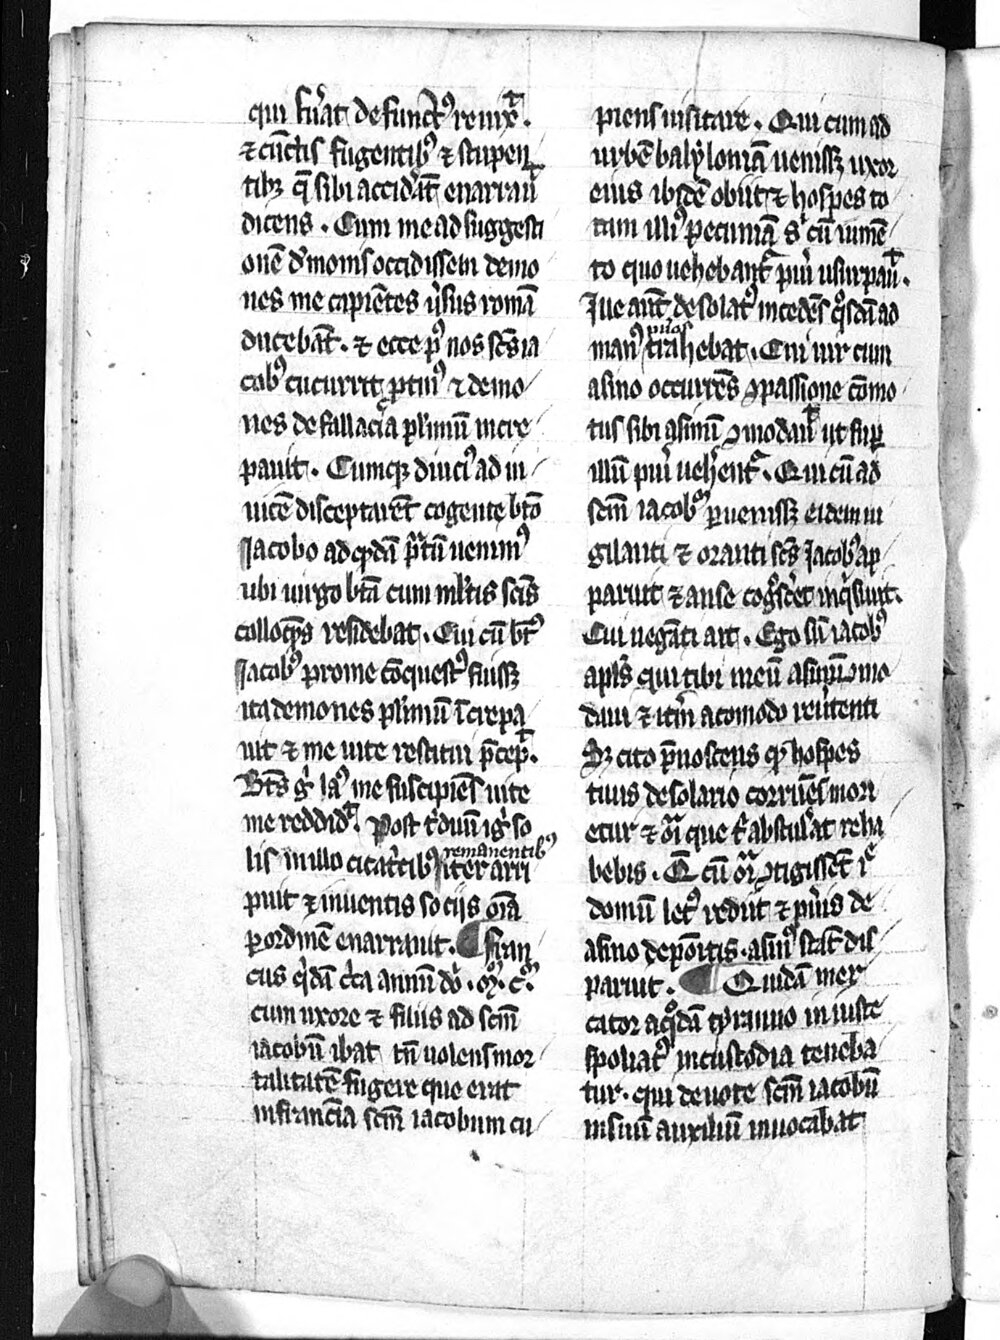 qui fu̾at defunctꝰ reuixͭ.
⁊ cu̅ctis fugentibꝰ ⁊ stupen
tibꝫ q̅ sibi accid̾at̅ enarrauͭ
dicens . Cum me ad suggesti
one̅ d̾monis occidissem demo
nes me capie̅tes u̾sus roma̅
ducebat̅ . ⁊ ecce pꝰ nos sc̅s ia
cobꝰ cucurrit ꝓtinꝰ ⁊ demo
nes de fallacia pl̾imu̅ incre
pauit . Cumqꝫ diuciꝰ ad in
uice̅ disceptaret̅ cogente bt̅o
Jacobo ad q̅da̅ p̾tu̅ uenimꝰ
ubi uirgo bt̅a cum ml̾tis sc̅is
colloq̅s residebat . Cui cu̅ bt̅ꝰ
Jacobꝰ pro me co̅questꝰ fuissꝫ
ita demones pl̾imu̅ i̅crepa
uit ⁊ me uite restitui p̅cepͭ.
Bt̅s g̾ iaꝰ me suscipie̅s uite
me reddidͭ. Post t̾duu̅ ig̾ so
lis in illo cicat̾cibꝰ remanentibꝰ iter arri
puit ⁊ inuentis sociis oi̅a
ꝑ ordine̅ enarrauit . ¶ fran
cus q̾da̅ c̾ca annu̅ do̾ . mͦ . cͦ.
cum uxore ⁊ filiis ad sc̅m
iacobu̅ ibat tn̅ uolens mor
talitate̅ fugere que erat
in francia sc̅m iacobum cu
piens uisitare . Qui cum ad
urbe̅ babyloniam uenissꝫ uxor
eius ibide̅ obiit ⁊ hospes to
tam illiꝰ pecunia̅ s̾ cu̅ iume̅
to quo uehebant̾ pu̾i usurpauͭ.
Jue aut̅ desolatꝰ incede̅s q̾sda̅ ad
manꝰ pu̾os trahebat . Cui uir cum
asino occurre̅s ꝯpassione co̅mo
tus sibi asinu̅ ꝯmodauͭ ut suꝑ
illu̅ pu̾i ueh̾ent̾ . Qui cu̅ ad
sc̅m iacobꝰ ꝑuenissꝫ eidem ui
gilanti ⁊ oranti sc̅s Jacobꝰ ap
paruit ⁊ an se cogͦsc̾et inq̾siuit.
Cui nega̅ti ait . Ego su̅ iacobꝰ
apl̅s qui tibi meu̅ asinu̅ ꝯmo
daui ⁊ it̾m acomodo reu̾tenti
Sꝫ cito p̅noscens qͩ hospes
tuus de solario corrue̅s mori
etur ⁊ oi̅a que t̾ abstul̾at reha
bebis . Q̅ cu̅ oi̅a ꝯtigisset̅ i̅
domu̅ letꝰ rediit ⁊ pu̾is de
asino depo̅itis . asinꝰ stat̅ dis
paruit . ¶ Quida̅ mer
cator a qͦda̅ tyranno iniuste
spoliatꝰ in custodia teneba
tur . qui deuote sc̅m iacobu̅
in suu̅ auxiliu̅ inuocabat